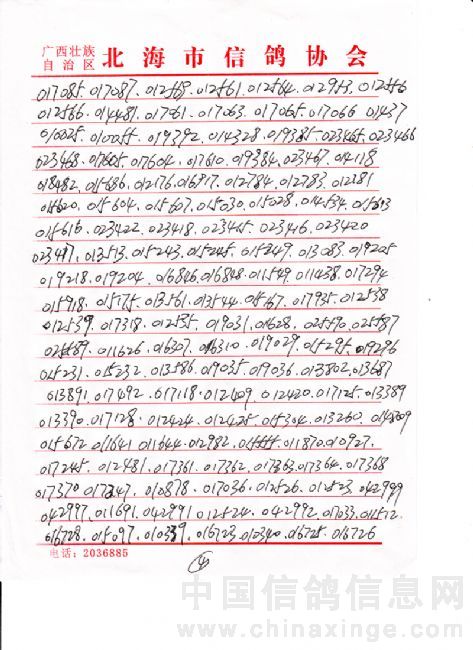 广西壮族
自治区 北海市信鸽协会
017085. 017087. 012569. 012561. 012564. 012953. 012556
012566. 014481. 017061. 017063. 017065. 017066 01437
010025. 010055. 019392. 014328. 019385. 023465. 023466
023468. 017605. 017604. 017610. 019384. 023467. 014118
018482. 015686. 012176. 016817. 012784. 012783. 012381
015620. 015604. 015607. 015030. 015028. 014534. 015613
015616. 023422. 023418. 023415. 023416. 023420
023417. 013513. 015243. 015245. 015249. 013083. 019205
019218. 019204. 016846. 016848. 011549. 011438. 017294
015918. 015175. 013561. 013544. 015167. 017935. 012538
012539. 017318. 012535. 019031. 014628. 025590. 025587
025589. 011626. 016307. 016310. 019029. 015295. 019296
015231. 015232. 013586. 019035. 019036. 013802. 013687
013891. 017492. 017118. 012409. 012420. 017125. 013389
013390. 017128. 012424. 012425. 015304. 013260. 014809
015672. 011641. 011644. 012982. 011870. 010927.
017245. 012481. 017361. 017362. 017363. 017364. 017368
017370. 017247. 010878. 017036. 012526. 012523. 042999
042997. 011691. 042991. 012524. 042992. 017033. 011512.
016728. 015097. 010339. 016723. 012340. 016725. 016726
电话：2036885
④
中国信鸽信息网
www.chinaxinge.com